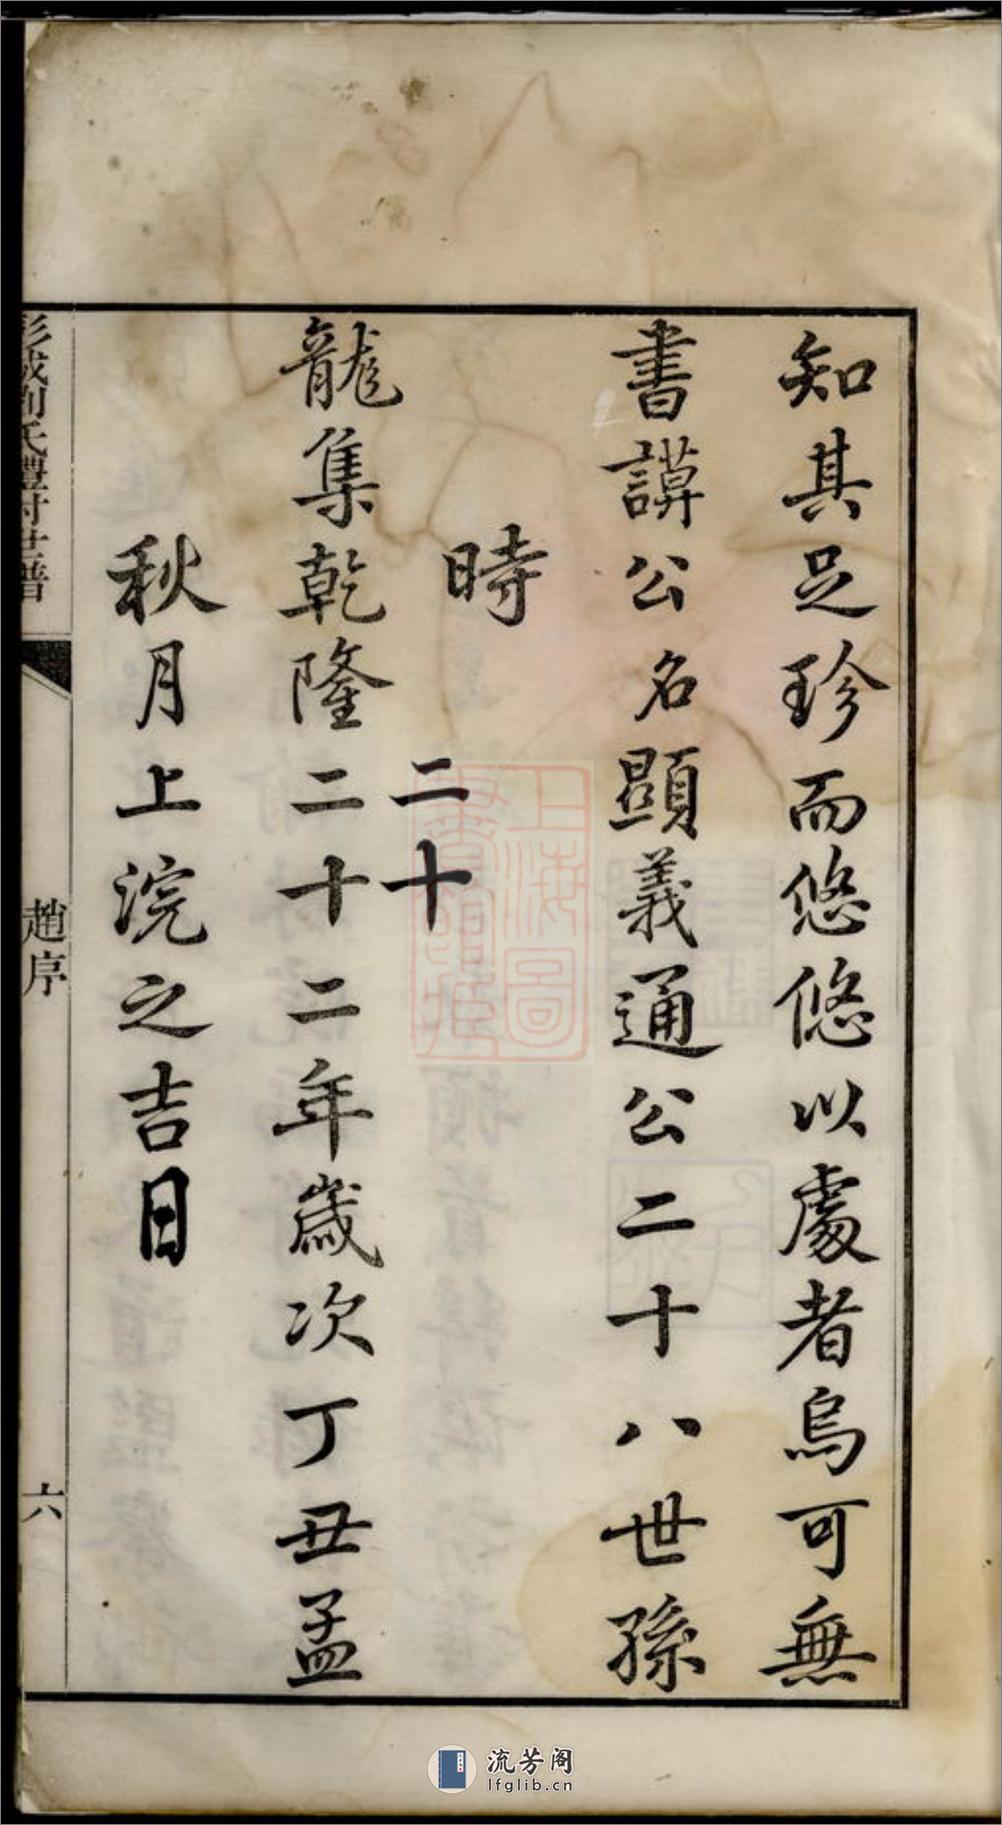 知其足珍而悠悠以處者烏可無
書謨公名顯義通公二十八世孫
時
二十
龍集乾隆二十二年歲次丁丑孟
秋月上浣之吉日
彭城劉氏禮村世譜
趙序
六
上海圖書館藏
流芳阁
lfglib.cn